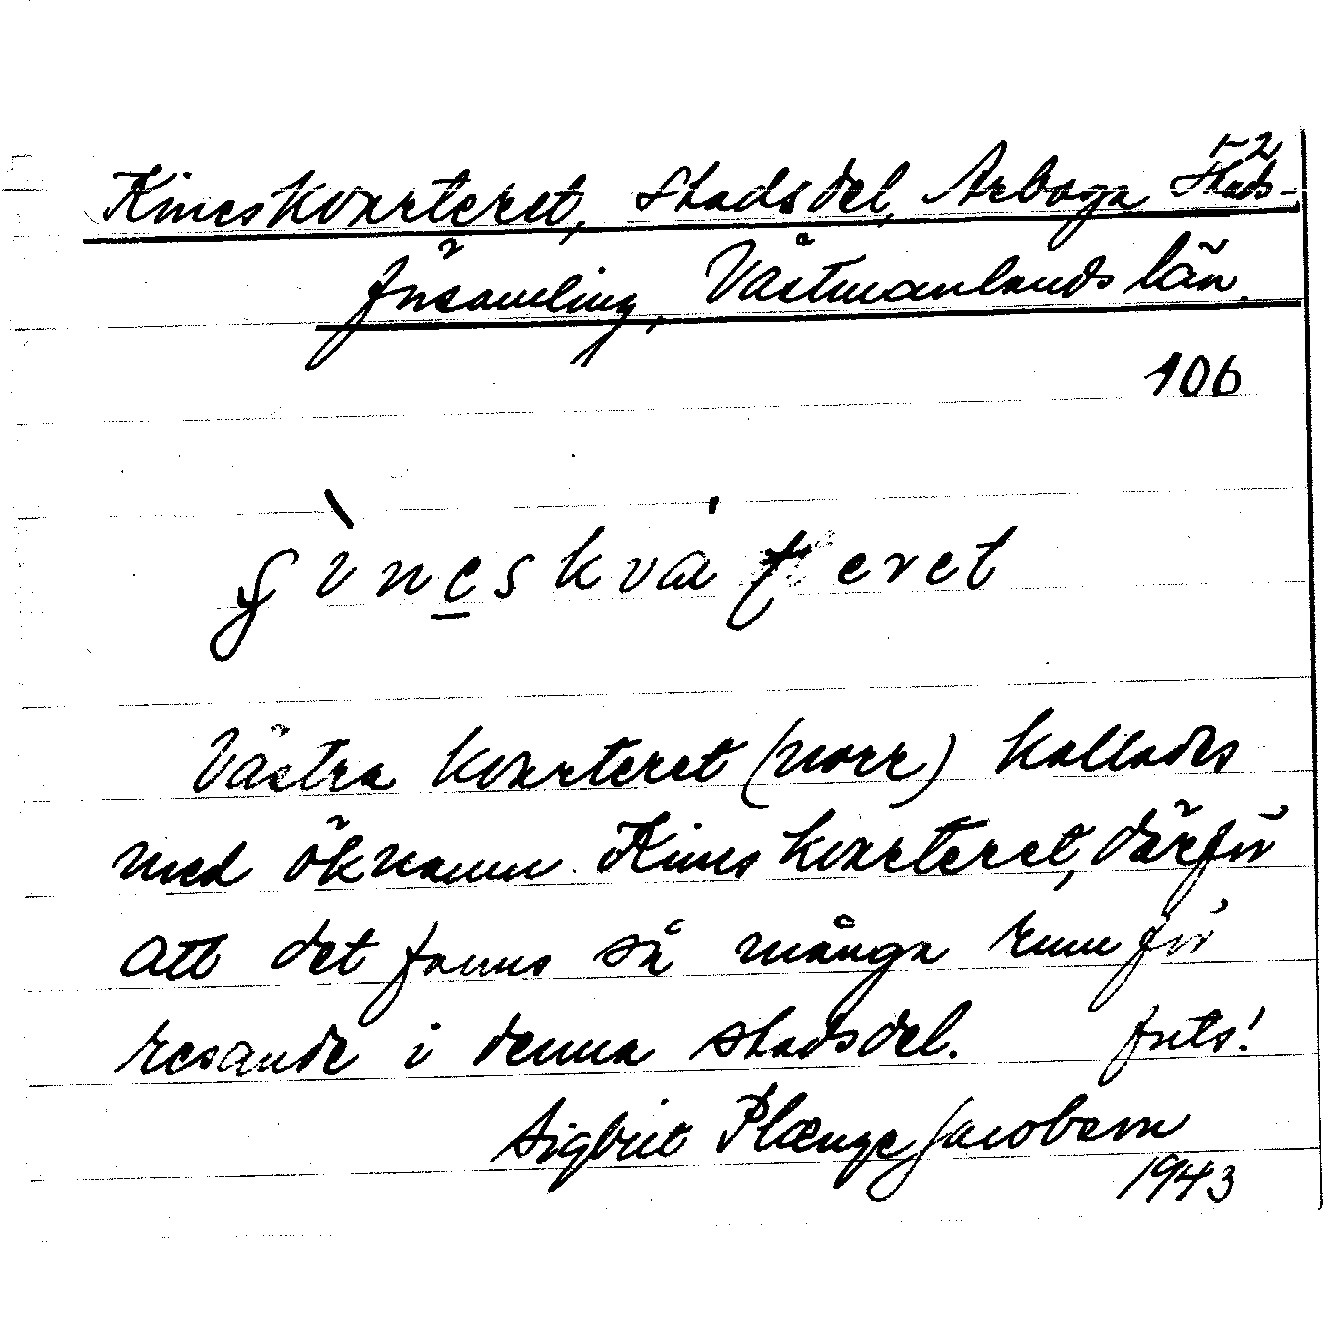 1-2
Kineskvarteret, Stadsdel, Arboga Stads-
församling, Västmanlands län.
106
Västra kvarteret (norr) kallades
med öknamn Kineskvarteret, därför
att det fanns så många rum för
resande i denna stadsdel. forts!
Sigbrit Plænge Jacobson
1943